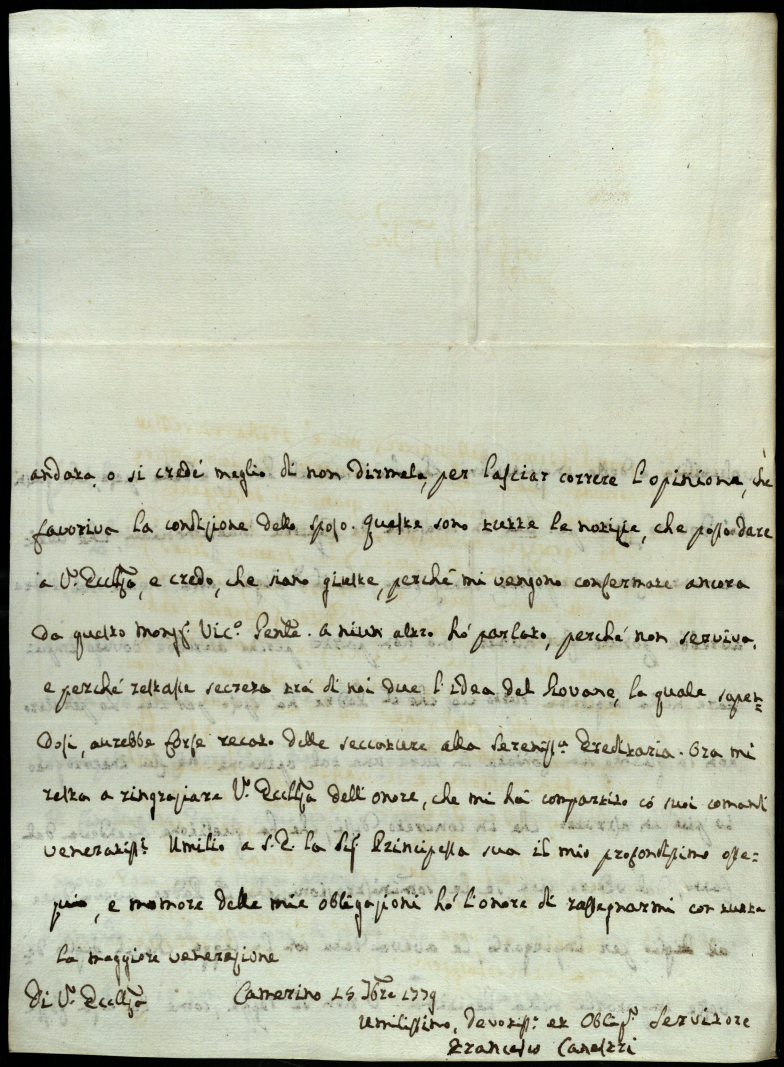 andara, o si credé meglio di non dirmela, per lasciar correre l'opinione, che
favoriva la condizione dello sposo. Queste sono tutte le notizie, che posso dare
a V.ª Eccllza, e credo, che siano giuste, perché mi vengono confermate ancora
da questo Mons.r Vic.o Gente. a niun altro hò parlato, perché non serviva,
e perché restasse secreta trá di noi due l'idea del Giovane, la quale sapen=
dosi, avrebbe forse recato delle seccature alla Sereniss.ª Ereditaria. Ora mi
resta a ringraziare V.ª Eccllza dell'onore, che mi há compartito có suoi comandi
veneratiss.i Umilio a S. E. la Sig.ª Principessa sua il mio profondissimo osse=
quio, e memore delle mie obligazioni hó l'onore di rassegnarmi con tutta
la maggiore venerazione
Di V.ª Eccllza Camerino 25 Xbre 1779
Umilissimo, Devotiss.o et Oblig.o Servitore
Francesco